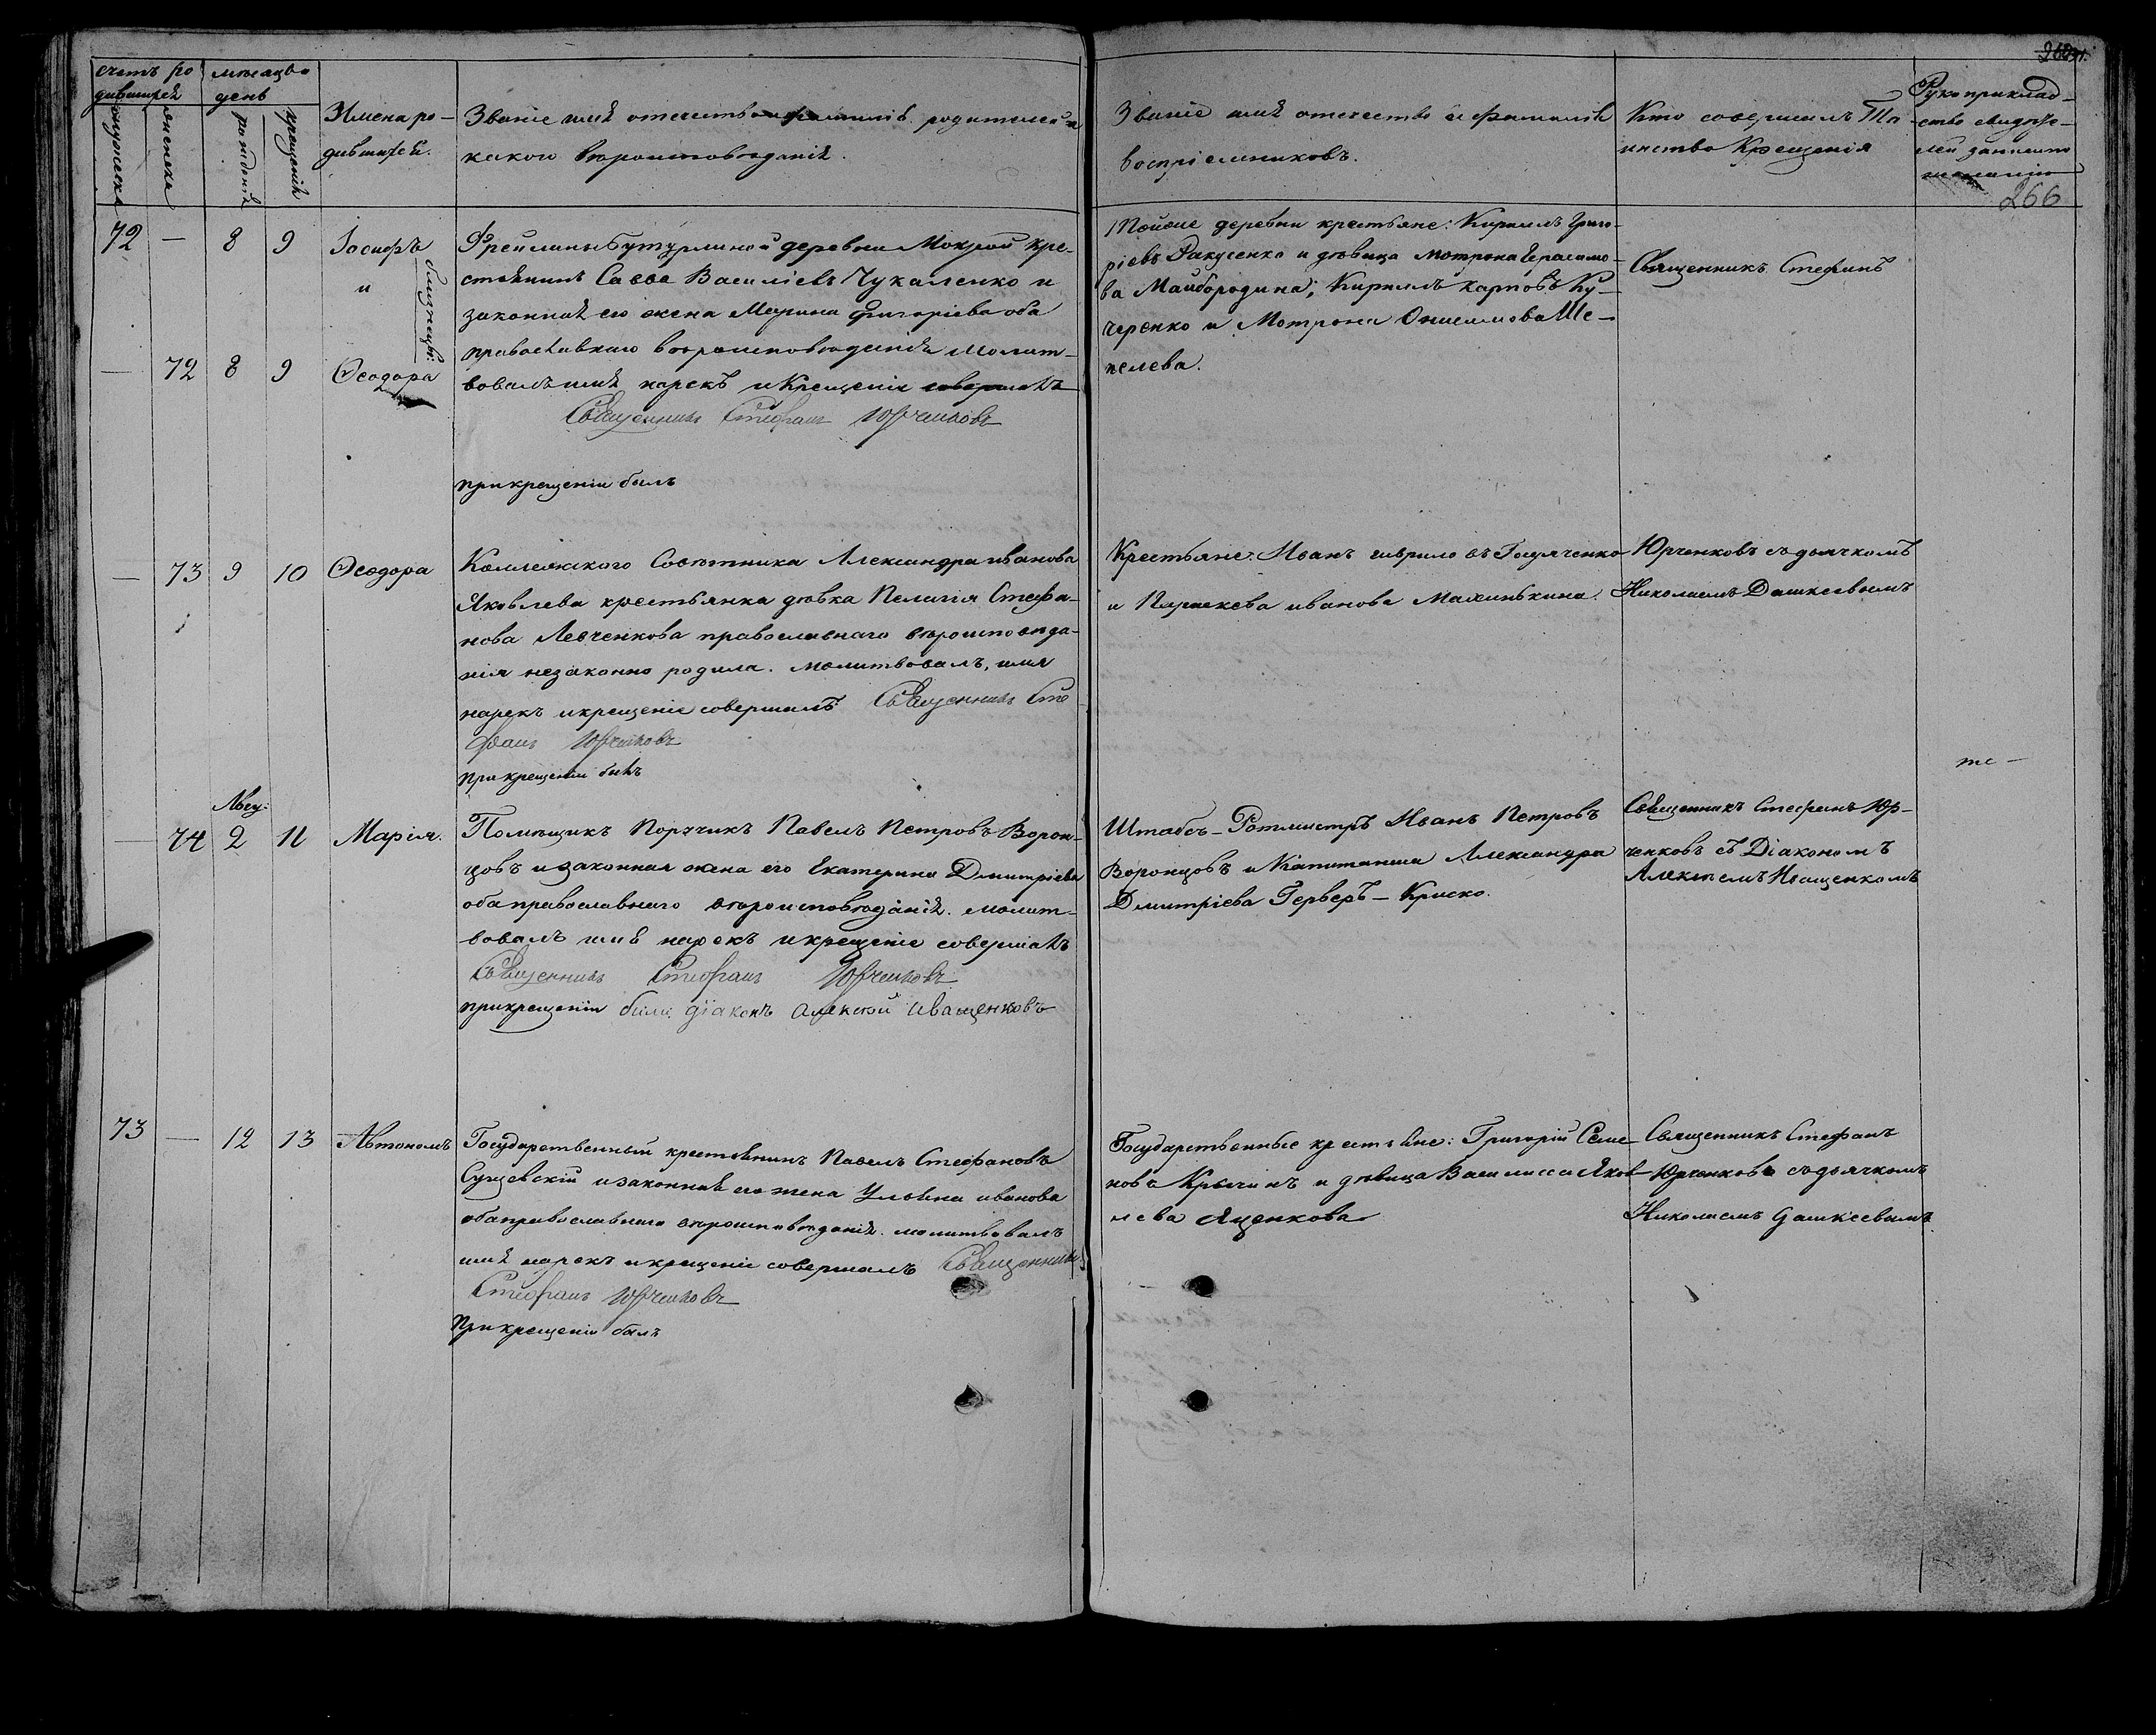 счетъ ро
дившихся
мужеска
женска
мѣсяцъ и
день
рожденія
крещенія
Имена ро-
дившихся.
Званіе имя отечество и фамилія родителей и
какого вѣроисповѣданія.
Званіе имя отечество и фамилія
воспріемниковъ.
Кто совершилъ Та
инство Крещенія
Рукоприклад-
ство свидѣте-
лей записи по
желанію
266
72 — 8 9 Іосифъ
и
близнецы.
— 72 8 9 Ѳеодора
Фрейлины Бутурлиной деревни Мокрой кре-
стьянинъ Савва Василіевъ Чукаленко и
законная его жена Марина Григоріева оба
православнаго вѣроисповѣданія Молит-
вовалъ имя нарекъ и Крещеніе совершалъ
Священникъ Стефанъ Юрченковъ
при крещеніи былъ
Тойже деревни крестьяне: Кириллъ Григо-
ріевъ Ракусенко и дѣвица Мотрона Герасимо-
ва Майбородина; Кириллъ Карповъ Ку-
черенко и Мотрона Онисимова Ше-
пелева.
Священникъ Стефанъ
— 73 9 10 Ѳеодора
Коллежского Совѣтника Александра иванова
Яковлева крестьянка дѣвка Пелагія Стефа-
нова Левченкова православнаго вѣроисповѣда-
нія незаконно родила. Молитвовалъ, имя
нарекъ и крещеніе совершалъ Священникъ Сте
фанъ Юрченковъ
при крещеніи былъ
Крестьяне: Иванъ гаврило въ
и Параскева иванова Махинькина.
Юрченковъ съ дьячкомъ
Николаемъ Дашкевымъ
Авгу:
— 74 2 11 Марія.
Помѣщикъ Поручикъ Павелъ Петровъ Ворон-
цовъ и законная жена его Екатерина Дмитріева
оба православнаго вѣроисповѣданія. молит-
вовалъ имя нарекъ и крещеніе совершалъ
Священникъ Стефанъ Юрченковъ
при крещеніи были діаконъ Алексій Иващенковъ
Штабсъ-Ротмистръ Иванъ Петровъ
Воронцовъ и Капитанша Александра
Дмитріева Герверъ-Криско.
Священникъ Стефанъ Юр-
ченковъ съ Діакономъ
Алексѣемъ Иващенкомъ
73 — 12 13 Автономъ
Государственный крестьянинъ Павелъ Стефановъ
Сущевскій и законная его жена Ульяна иванова
оба православнаго вѣроисповѣданія. молитвовалъ
имя нарекъ и крещеніе совершалъ Священникъ
Стефанъ Юрченковъ
При крещеніи былъ
Государственные крестьяне: Григорій Семе-
новъ Крычинъ и дѣвица Василисса Яков-
лева Яценкова
Священникъ Стефанъ
Юрченковъ съ дьячкомъ
Николаемъ Дашкевымъ